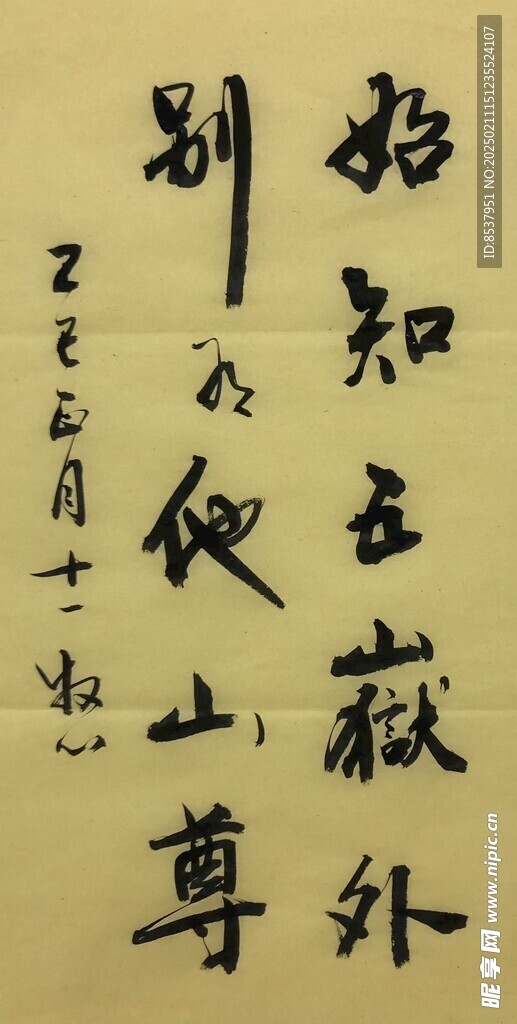 始知五嶽外
别有他山尊
乙巳正月十一
ID:8537951 NO:20250211151235524107
昵享网 www.nipic.cn